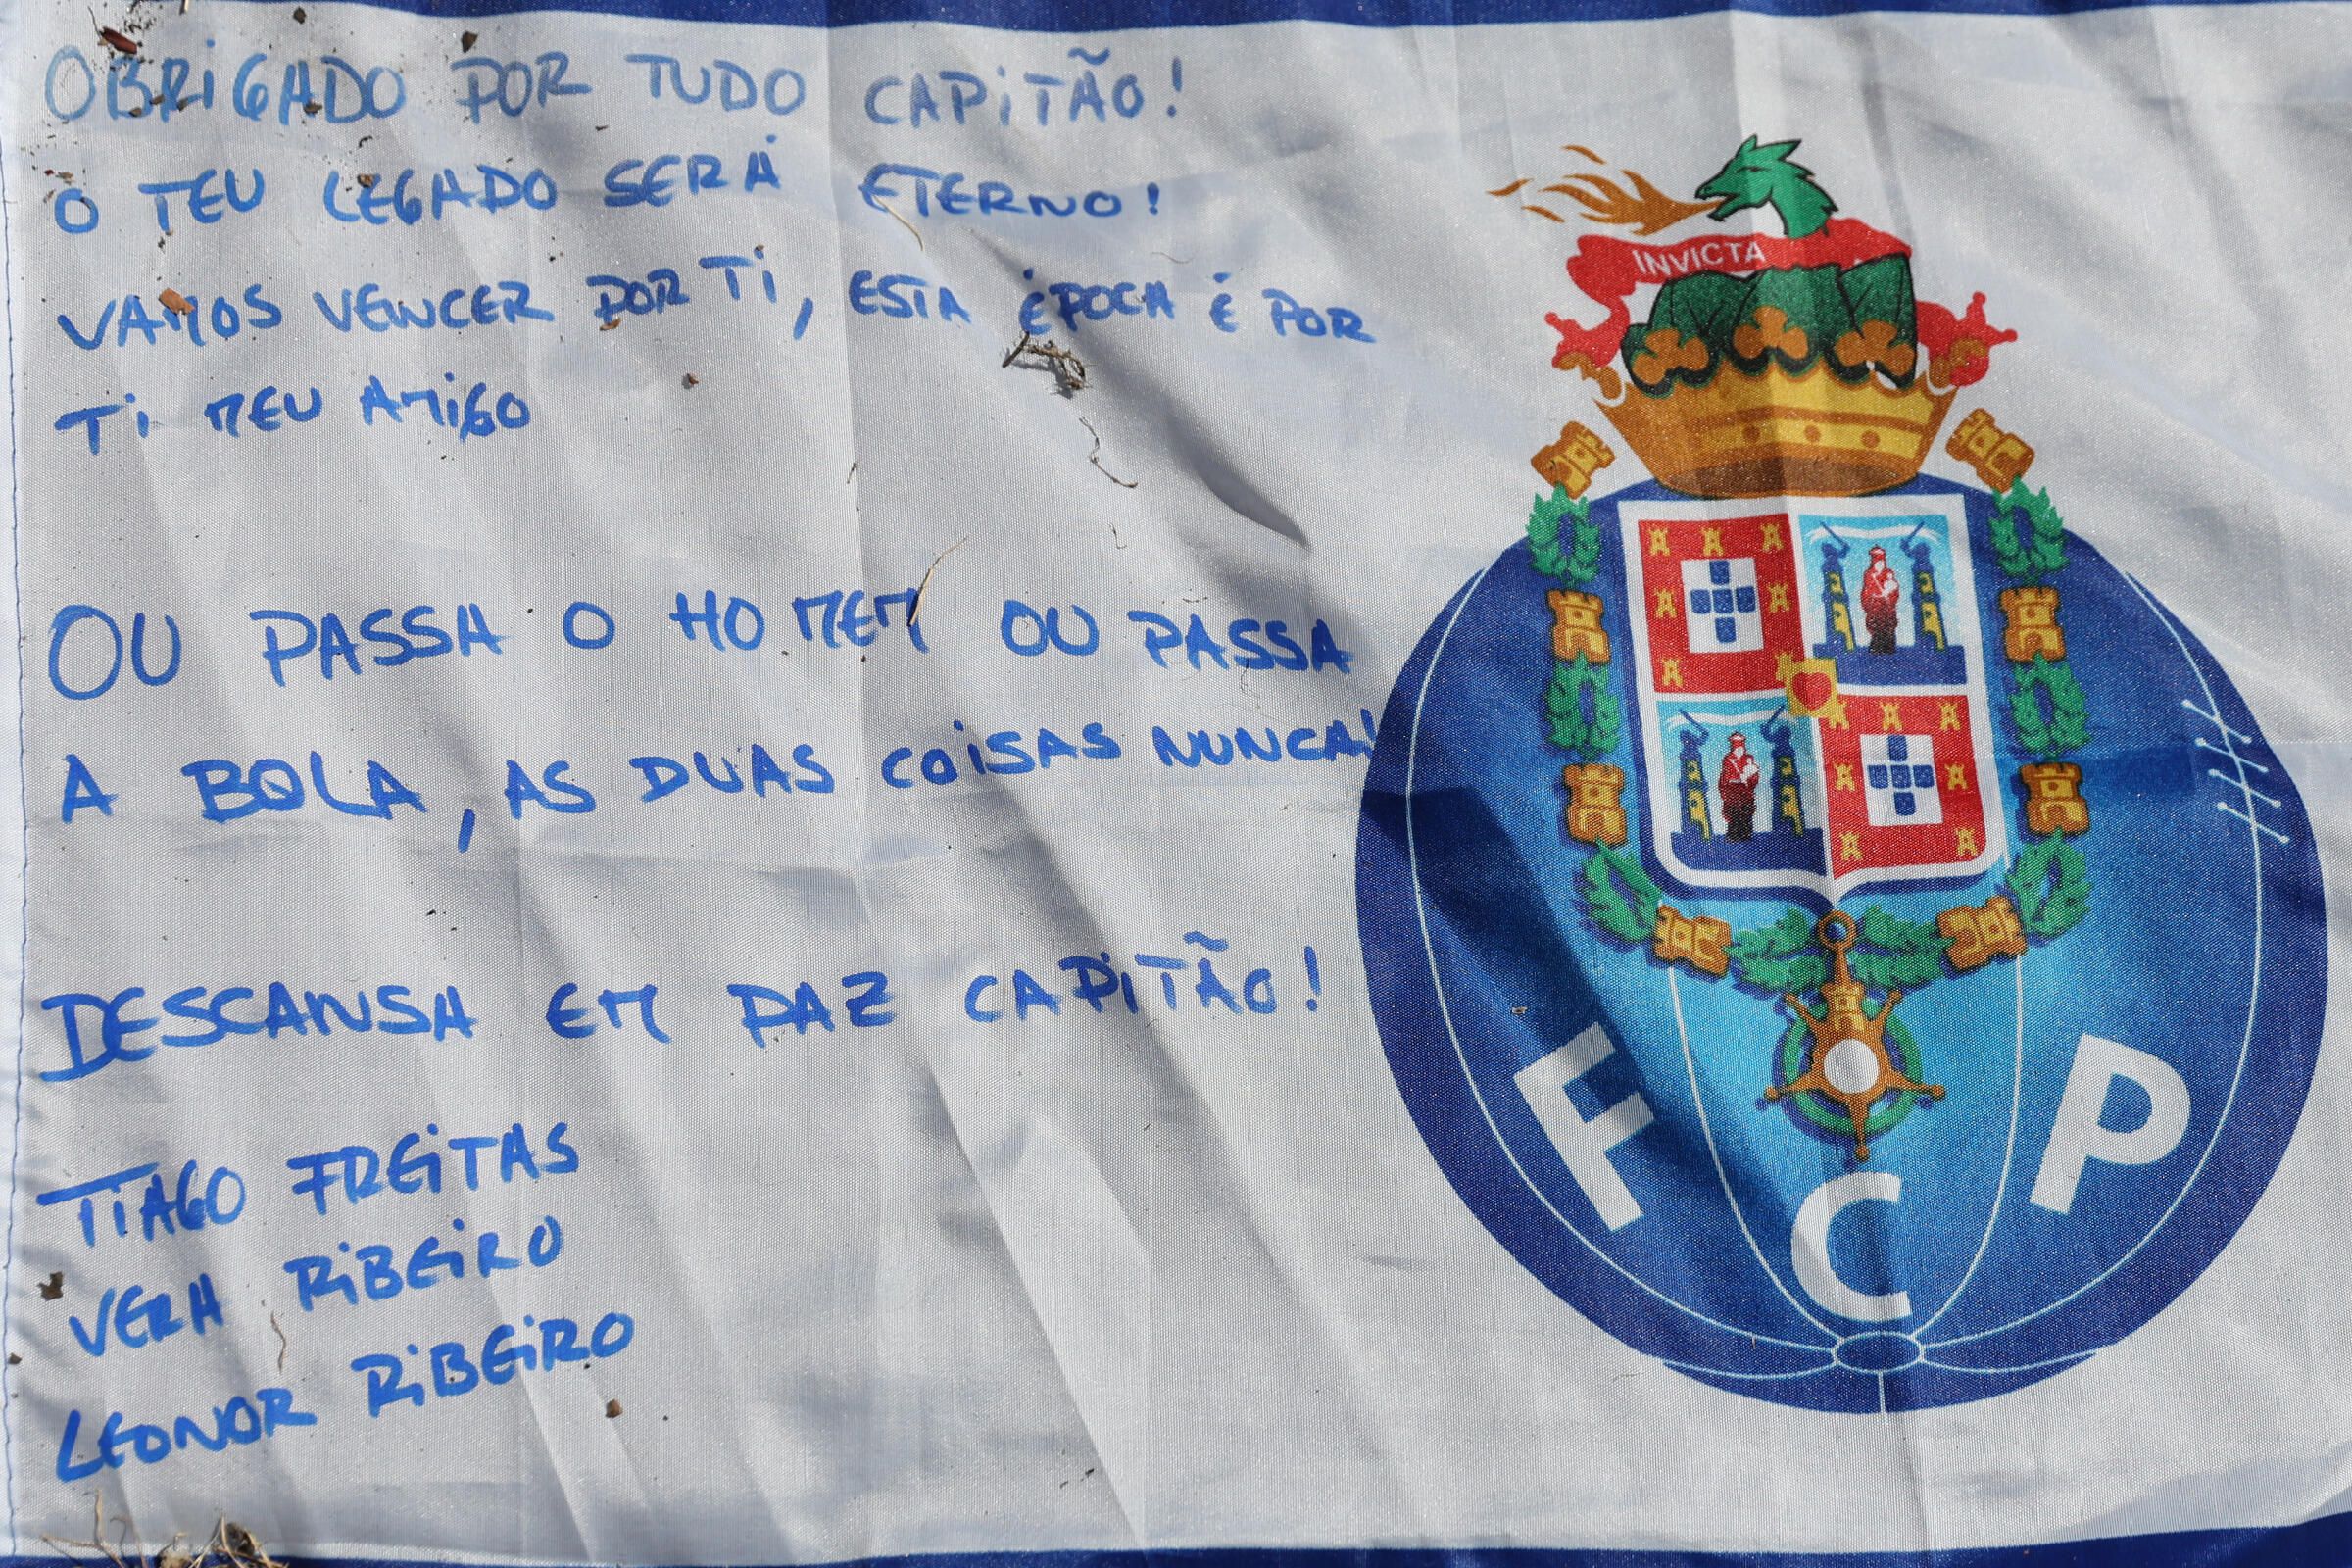 OBRIGADO POR TUDO CAPITÃO!
O TEU LEGADO SERÁ ETERNO!
VAMOS VENCER POR TI, ESTA ÉPOCA É POR
TI MEU AMIGO
OU PASSA O HOMEM OU PASSA
A BOLA, AS DUAS COISAS NUNCA!
DESCANSA EM PAZ CAPITÃO!
TIAGO FREITAS
VERA RIBEIRO
LEONOR RIBEIRO
INVICTA
F C P